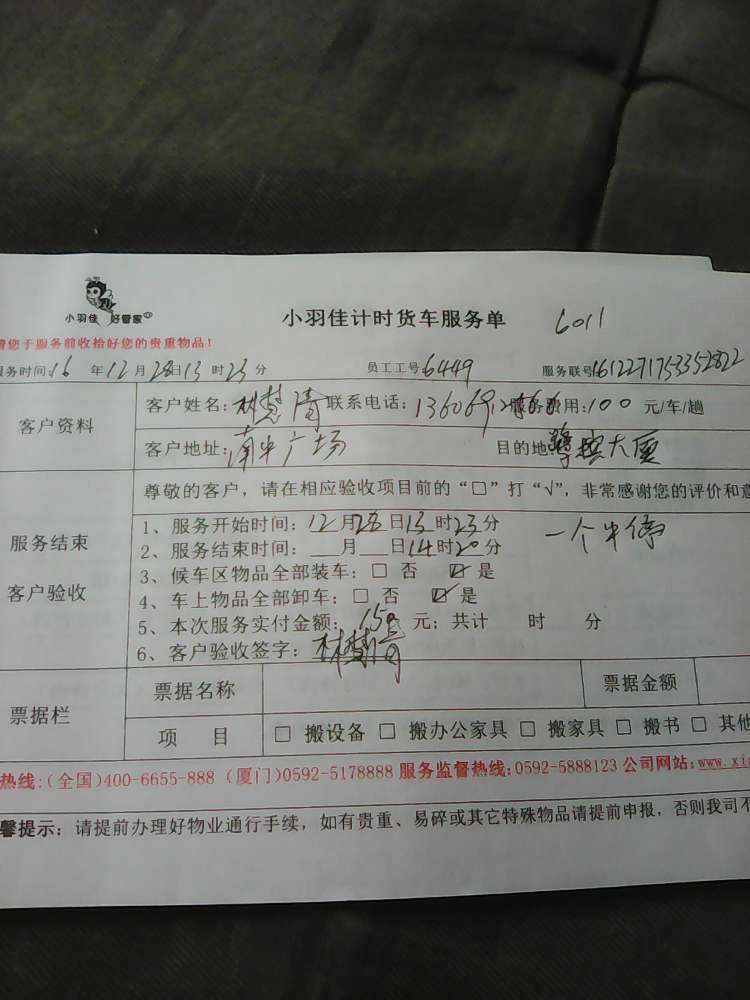 小羽佳 好管家
小羽佳计时货车服务单 6011
请您于服务前收拾好您的贵重物品！
服务时间：16 年 12 月 28 日 13 时 23 分 员工工号：6449 服务联号：
客户资料
客户姓名：林慧清 联系电话：13606 服务费用：100 元/车/趟
客户地址： 广场 目的地 大厦
尊敬的客户，请在相应验收项目前的“□”打“√”，非常感谢您的评价和意
服务结束
客户验收
1、服务开始时间：12 月 28 日 13 时 23 分 一个半
2、服务结束时间：___月___日 14 时 20 分
3、候车区物品全部装车：□ 否 ☑ 是
4、车上物品全部卸车：□ 否 ☑ 是
5、本次服务实付金额： 元；共计 时 分
6、客户验收签字：林慧清
票据栏
票据名称 票据金额
项 目 □ 搬设备 □ 搬办公家具 □ 搬家具 □ 搬书 □ 其他
热线：(全国)400-6655-888 (厦门)0592-5178888 服务监督热线：0592-5888123 公司网站：www.xia
馨提示：请提前办理好物业通行手续，如有贵重、易碎或其它特殊物品请提前申报，否则我司不